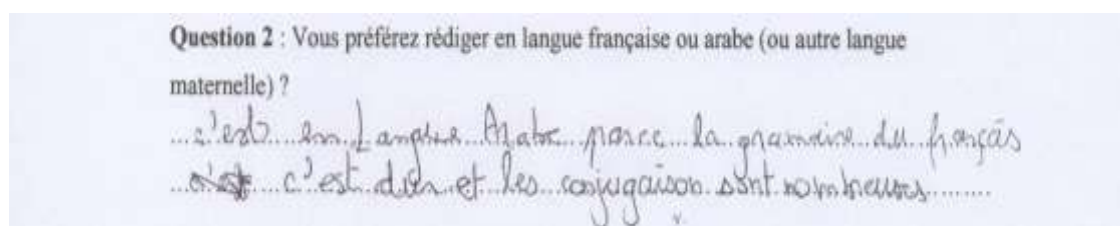 Question 2 : Vous préférez rédiger en langue française ou arabe (ou autre langue
maternelle) ?
c'est en Langue Arabe parce la gramaire du françãs
c'est et les conjugaison sont nombreuses